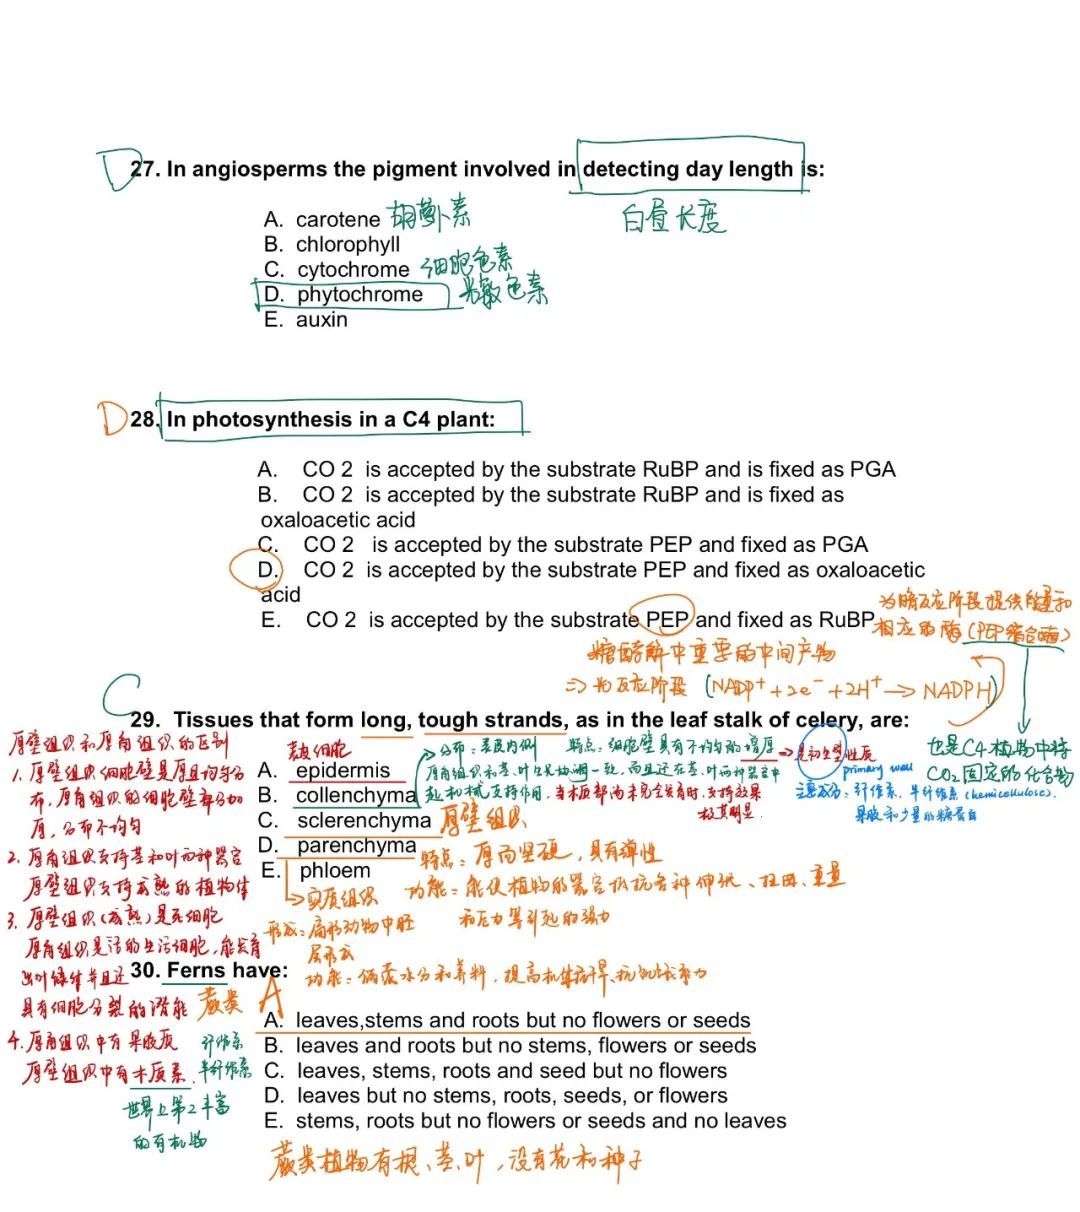 D
27. In angiosperms the pigment involved in detecting day length is:
白昼长度
A. carotene 胡萝卜素
B. chlorophyll
C. cytochrome 细胞色素
D. phytochrome 光敏色素
E. auxin
D
28. In photosynthesis in a C4 plant:
A. CO 2 is accepted by the substrate RuBP and is fixed as PGA
B. CO 2 is accepted by the substrate RuBP and is fixed as
oxaloacetic acid
C. CO 2 is accepted by the substrate PEP and fixed as PGA
D. CO 2 is accepted by the substrate PEP and fixed as oxaloacetic
acid
E. CO 2 is accepted by the substrate PEP and fixed as RuBP
为暗反应阶段提供能量和
相应的酶(PEP羧合酶)
糖酵解中重要的中间产物
⇒ 光反应阶段 (NADP⁺+2e⁻+2H⁺→NADPH)
也是C4植物中持
CO₂固定的化合物
C
29. Tissues that form long, tough strands, as in the leaf stalk of celery, are:
表皮细胞
A. epidermis
B. collenchyma
C. sclerenchyma 厚壁组织
D. parenchyma
E. phloem
→分布:表皮内侧 特点:细胞壁具有不均匀的增厚
→是初生壁性质
primary wall
主要成分:纤维素、半纤维素(hemicellulose)、
果胶和少量的糖蛋白
厚角组织和茎、叶生长协调一致,而且还在茎、叶而神器官中
起机械支持作用,当木质部尚未完全发育时,支持效果
极其明显.
特点:厚而坚硬,具有弹性
功能:能使植物的器官抗各种伸长、扭曲、重量
和压力等引起的张力
→实质组织
形成:扁形动物中胚
层形成
功能:储藏水分和养料,提高机体耐旱、抗饥饿能力
厚壁组织和厚角组织的区别
1. 厚壁组织细胞壁是厚且均匀分
布,厚角组织的细胞壁部分加
厚,分布不均匀
2. 厚角组织支持茎和叶而神器官
厚壁组织支持成熟的植物体
3. 厚壁组织(成熟)是死细胞
厚角组织是活的生活细胞,能发育
出叶绿体并且还
具有细胞分裂的潜能
4. 厚角组织中有果胶质 纤维素
厚壁组织中有木质素、半纤维素
世界上第2丰富
的有机物
30. Ferns have:
蕨类
A
A. leaves,stems and roots but no flowers or seeds
B. leaves and roots but no stems, flowers or seeds
C. leaves, stems, roots and seed but no flowers
D. leaves but no stems, roots, seeds, or flowers
E. stems, roots but no flowers or seeds and no leaves
蕨类植物有根、茎、叶,没有花和种子